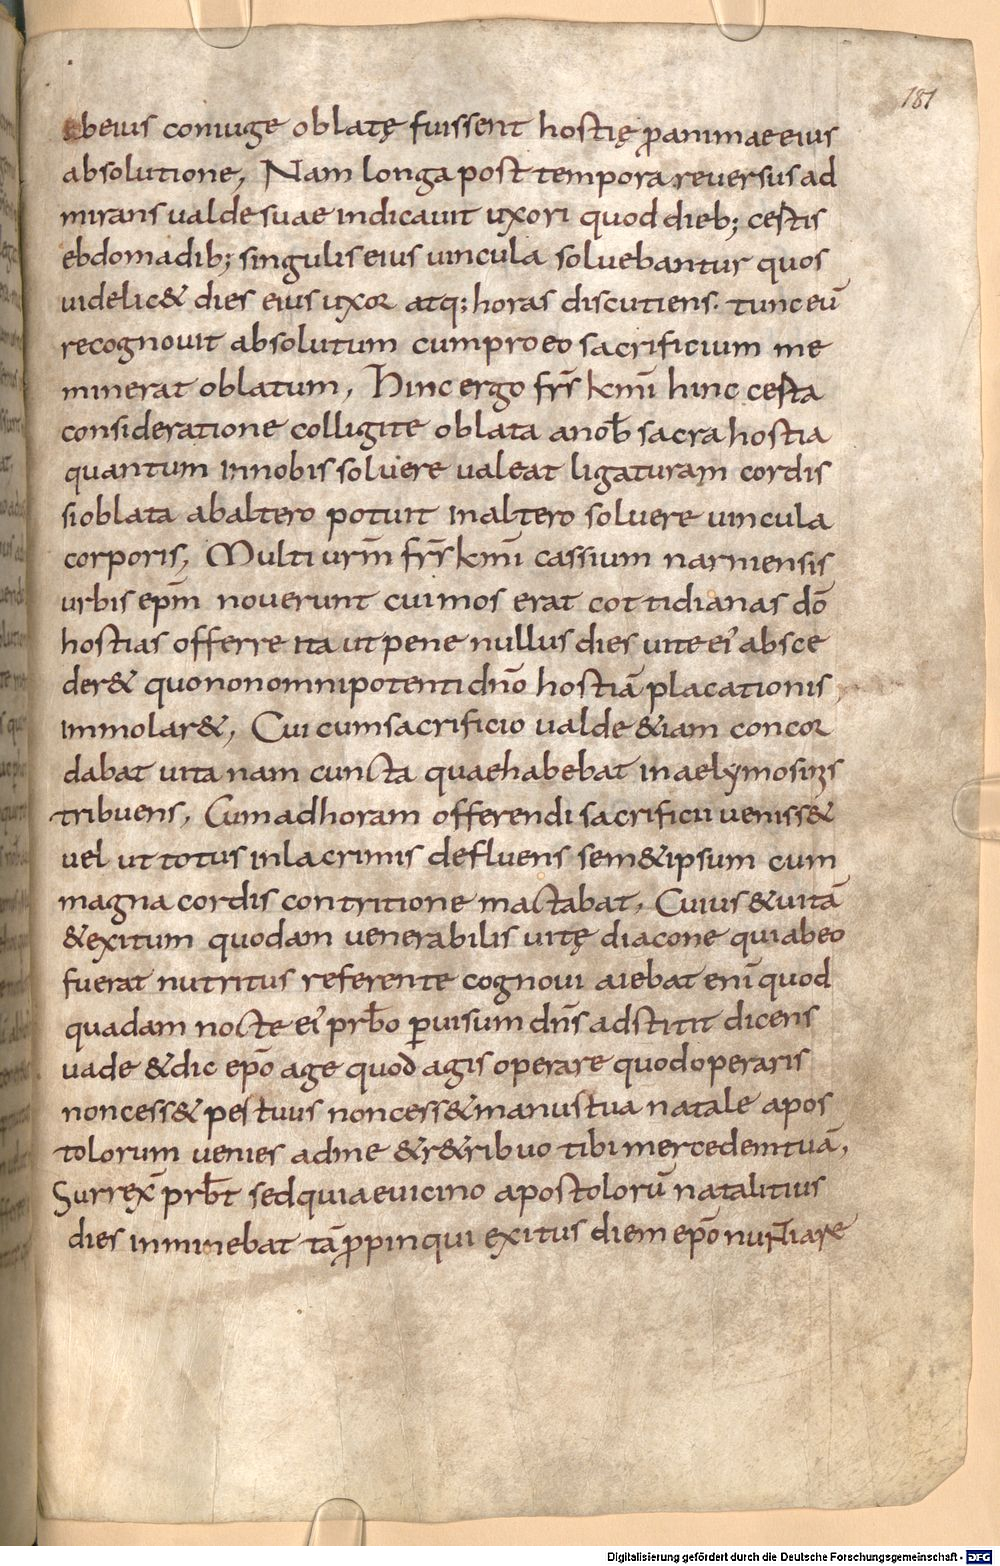 181
abeius coniuge oblatę fuissent hostię ꝓanimae eius
absolutione, Nam longa post tempora reuersus ad
mirans ualde suae indicauit uxori quod dieb; cestis
ebdomadib; singulis eius uincula soluebantur quos
uidelic& dies eius uxor atq; horas discutiens. tunc eū
recognouit absolutum cum pro eo sacrificium me
minerat oblatum, Hinc ergo frs̄ km̄i hinc cesta
consideratione colligite oblata anob̄ sacra hostia
quantum innobis soluere ualeat ligaturam cordis
si oblata abaltero potuit inaltero soluere uincula
corporis, Multi urm̄ frs̄ km̄i cassium narniensis
urbis epm̄ nouerunt cui mos erat cottidianas dō
hostias offerre ita ut pene nullus dies uite ei᾽ absce
der& quo non omnipotenti dn̄o hostiā placationis
immolar&, Cui cum sacrificio ualde &iam concor
dabat uita nam cuncta quae habebat in aelymosinis
tribuens, Cum adhoram offerendi sacrificii ueniss&
uel ut totus inlacrimis defluens sem&ipsum cum
magna cordis contritione mactabat, Cuius &uitā
&exitum quodam uenerabilis uitę diacone qui abeo
fuerat nutritus referente cognoui aiebat enī quod
quadam nocte ei᾽ prb̄o ꝑuisum dn̄s adstitit dicens
uade &dic epō age quod agis operare quod operaris
non cess& pes tuus non cess& manus tua natale apos
tolorum uenies ad me &r&ribuo tibi mercedem tuā,
Surrex̄ prb̄t sed quia euicino apostolorū natalitius
dies inminebat tā ꝓpinqui exitus diem epō nuntiare
Digitalisierung gefördert durch die Deutsche Forschungsgemeinschaft - DFG